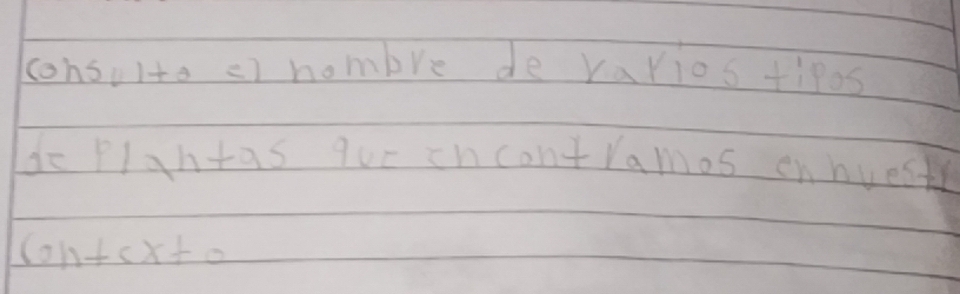 consulto el nombre de varios tipos
de Plantas que encontramos en nuestr
contexto